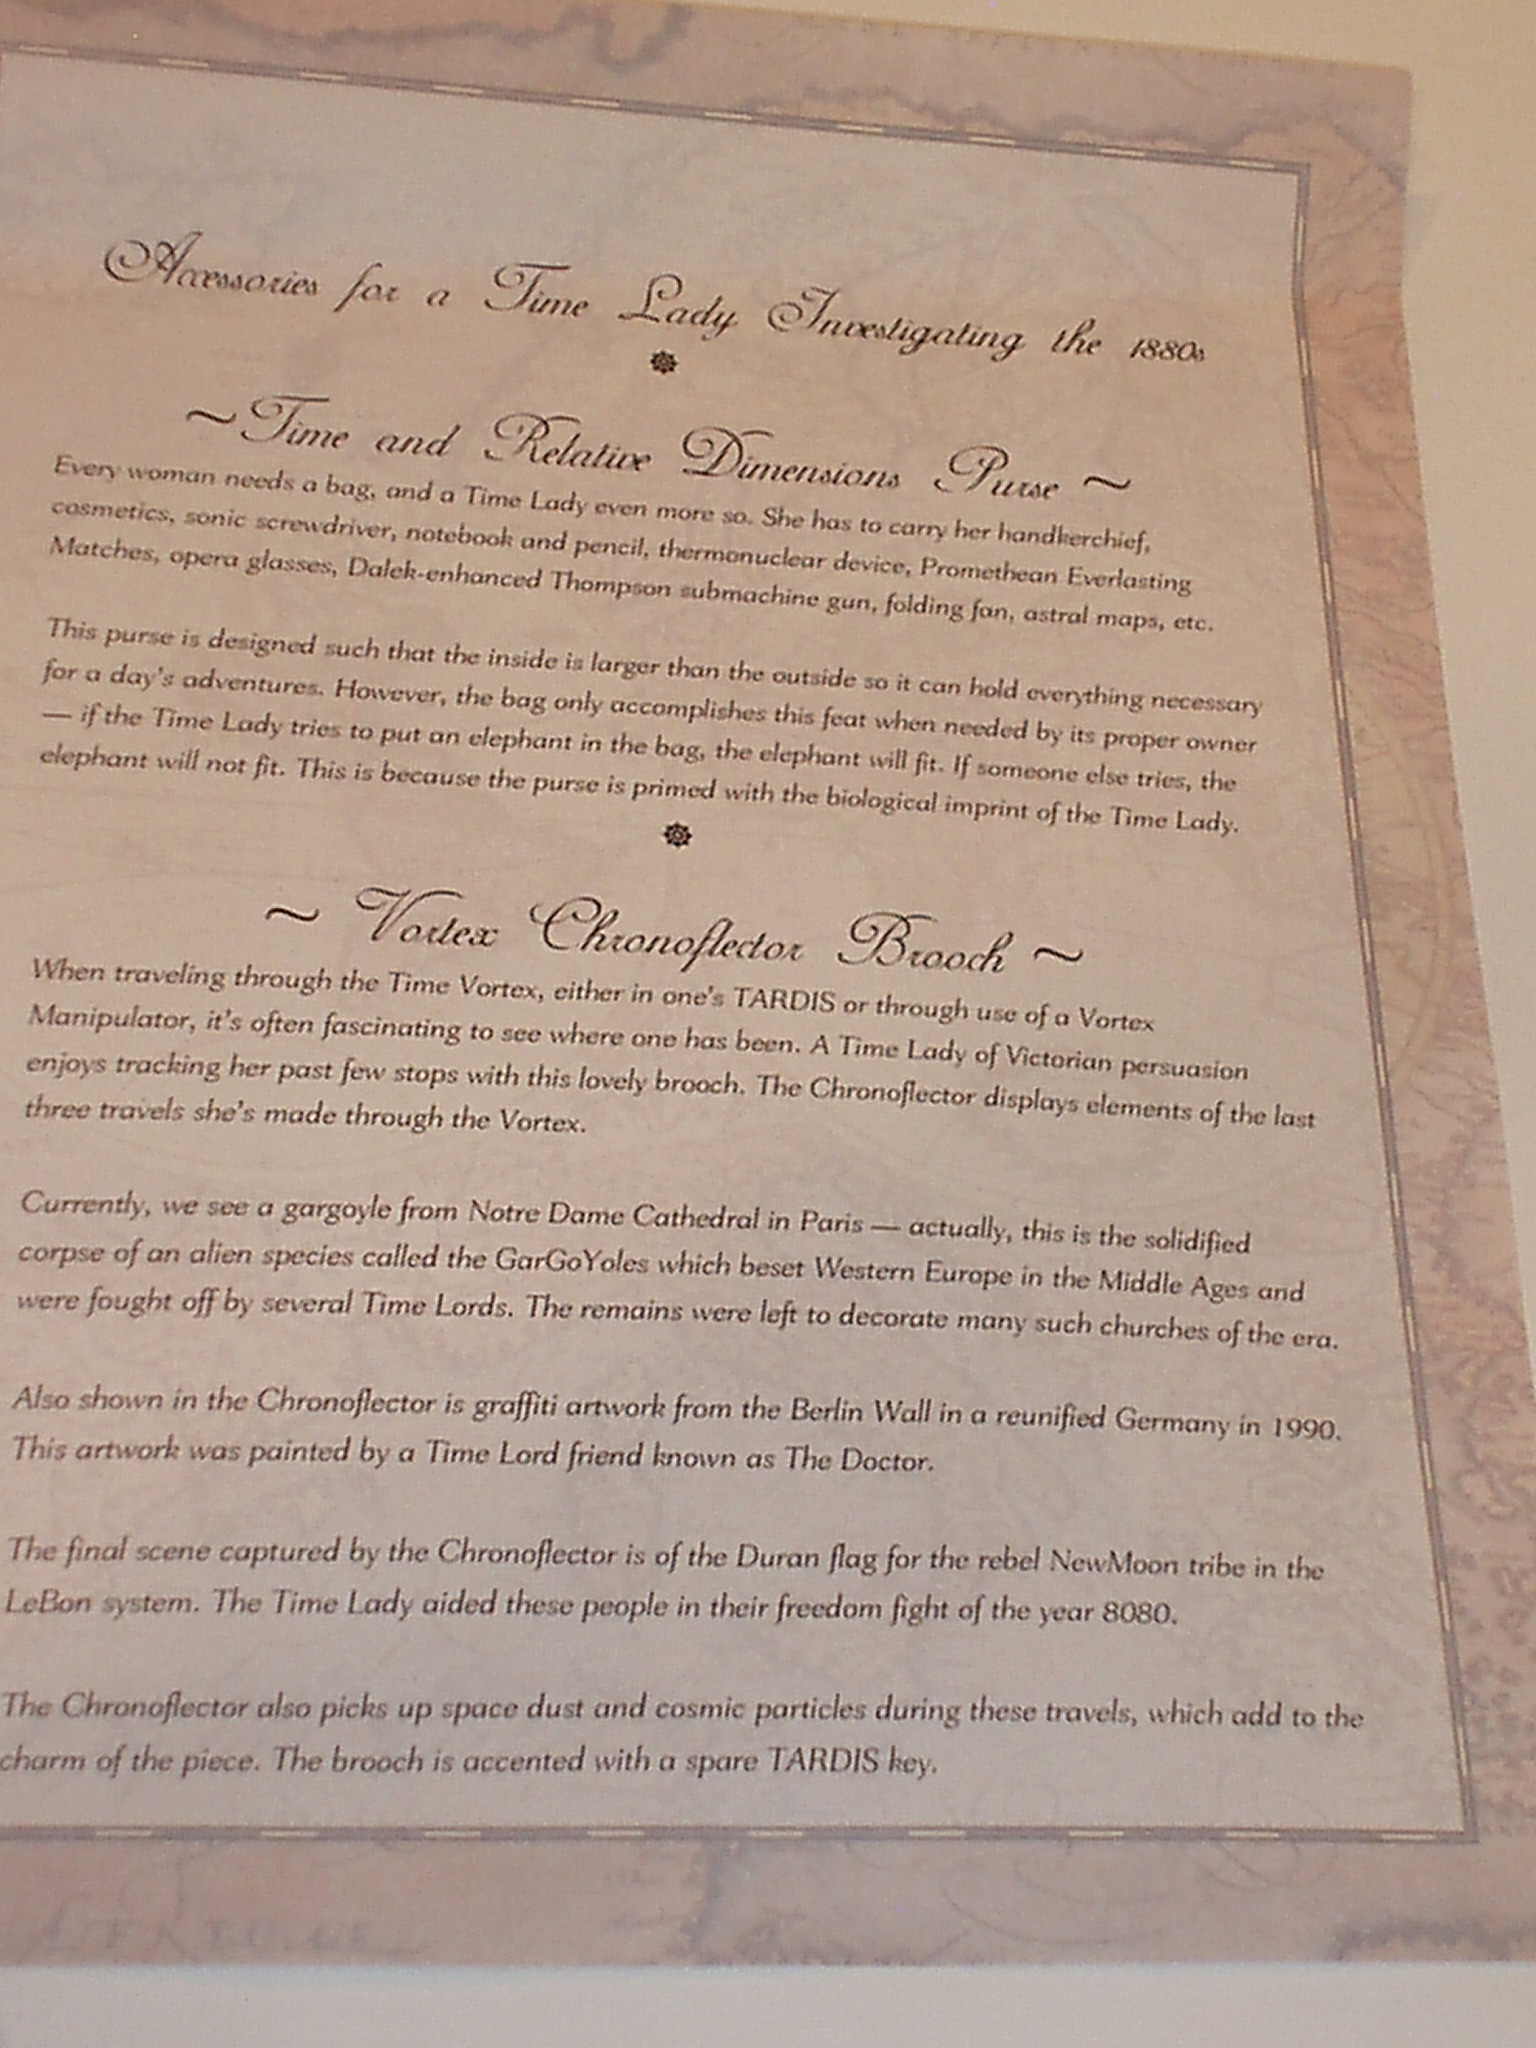 Accessories for a Time Lady Investigating the 1880s
~Time and Relative Dimensions Purse ~
Every woman needs a bag, and a Time Lady even more so. She has to carry her handkerchief,
cosmetics, sonic screwdriver, notebook and pencil, thermonuclear device, Promethean Everlasting
Matches, opera glasses, Dalek-enhanced Thompson submachine gun, folding fan, astral maps, etc.
This purse is designed such that the inside is larger than the outside so it can hold everything necessary
for a day's adventures. However, the bag only accomplishes this feat when needed by its proper owner
— if the Time Lady tries to put an elephant in the bag, the elephant will fit. If someone else tries, the
elephant will not fit. This is because the purse is primed with the biological imprint of the Time Lady.
~ Vortex Chronoflector Brooch ~
When traveling through the Time Vortex, either in one's TARDIS or through use of a Vortex
Manipulator, it's often fascinating to see where one has been. A Time Lady of Victorian persuasion
enjoys tracking her past few stops with this lovely brooch. The Chronoflector displays elements of the last
three travels she's made through the Vortex.
Currently, we see a gargoyle from Notre Dame Cathedral in Paris — actually, this is the solidified
corpse of an alien species called the GarGoYoles which beset Western Europe in the Middle Ages and
were fought off by several Time Lords. The remains were left to decorate many such churches of the era.
Also shown in the Chronoflector is graffiti artwork from the Berlin Wall in a reunified Germany in 1990.
This artwork was painted by a Time Lord friend known as The Doctor.
The final scene captured by the Chronoflector is of the Duran flag for the rebel NewMoon tribe in the
LeBon system. The Time Lady aided these people in their freedom fight of the year 8080.
The Chronoflector also picks up space dust and cosmic particles during these travels, which add to the
charm of the piece. The brooch is accented with a spare TARDIS key.